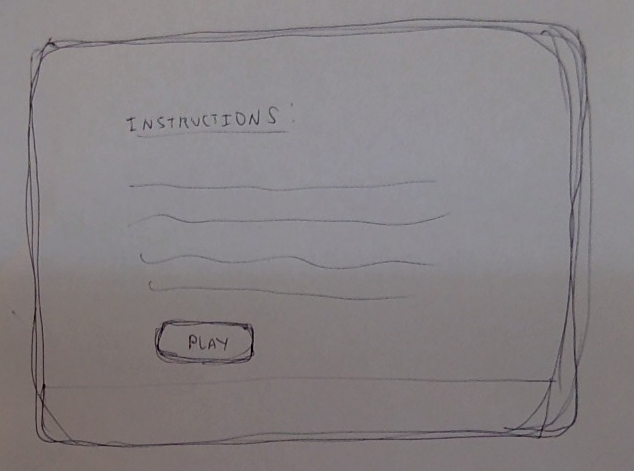 INSTRUCTIONS:
PLAY